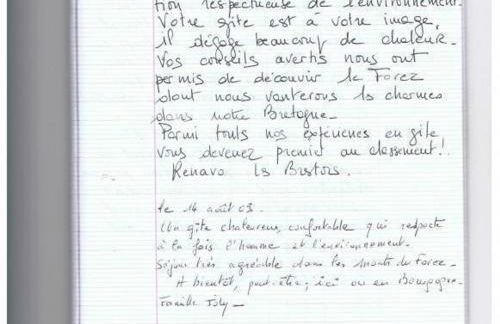 tion respectueuse de l'environnement.
Votre gîte est à votre image,
il dégage beaucoup de chaleur.
Vos conseils avertis nous ont
permis de découvrir le Forez
dont nous vanterons ls charmes
dans notre Bretagne.
Parmi touts nos expériences en gîte
vous devenez premier au classement!
Kenavo ls Bretons.
Le 14 août 03.
Un gîte chaleureux, confortable qui respecte
à la fois l'homme et l'environnement.
Séjour très agréable dans les monts du Forez.
A bientôt, peut-être, ici ou en Bourgogne.
Famille